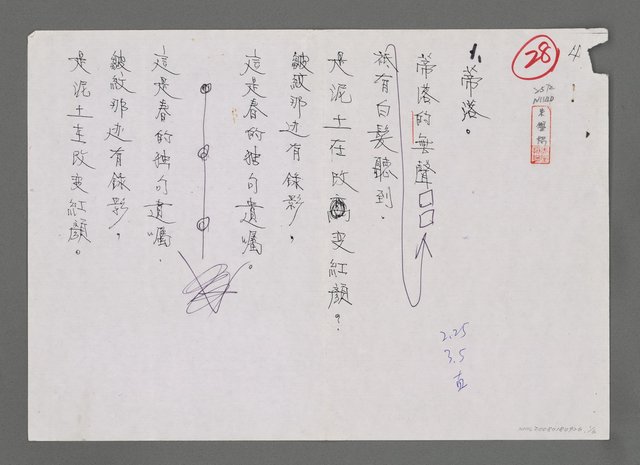 4
28
1. 蒂落。
蒂落的無聲□□
祇有白髮聽到.
是泥土在改變紅顏？
皺紋那边有錄影，
這是春的独句遺囑。
這是春的独句遺囑.
皺紋那边有錄影，
是泥土在改变紅顏。
2.25
3.5
直